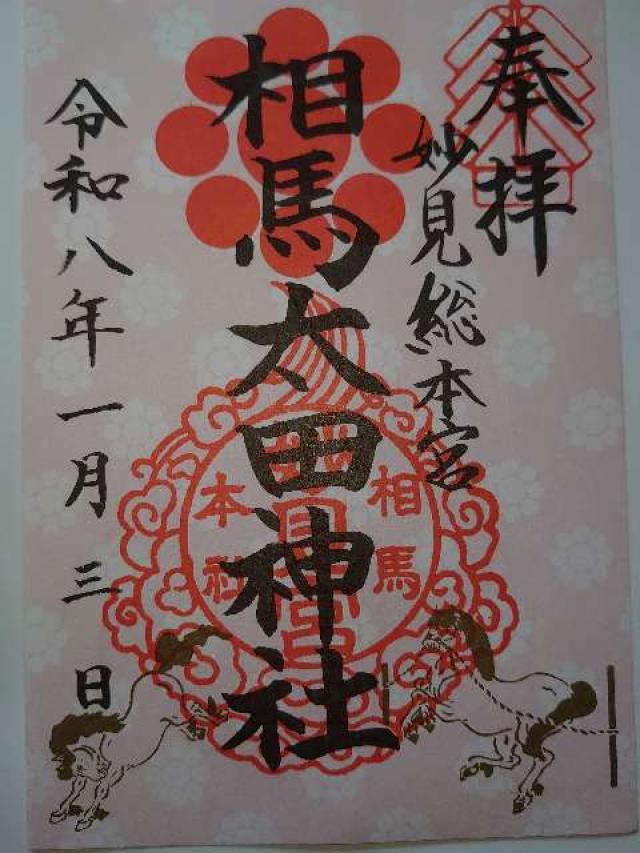 奉拝
妙見総本宮
相馬太田神社
令和八年一月三日
相馬
本社